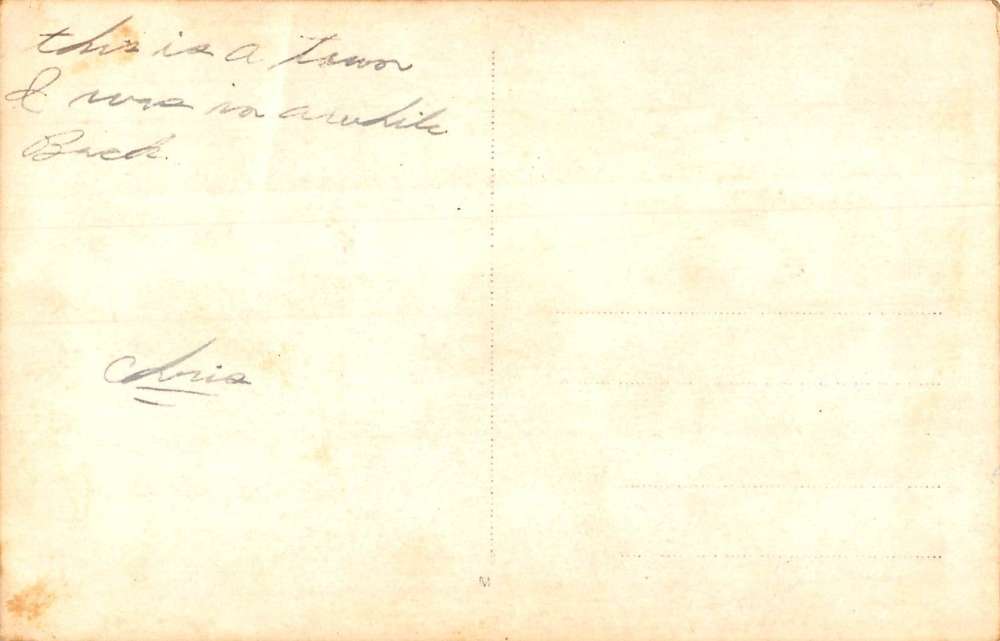 this is a Town
I was in awhile
Back.
Chris